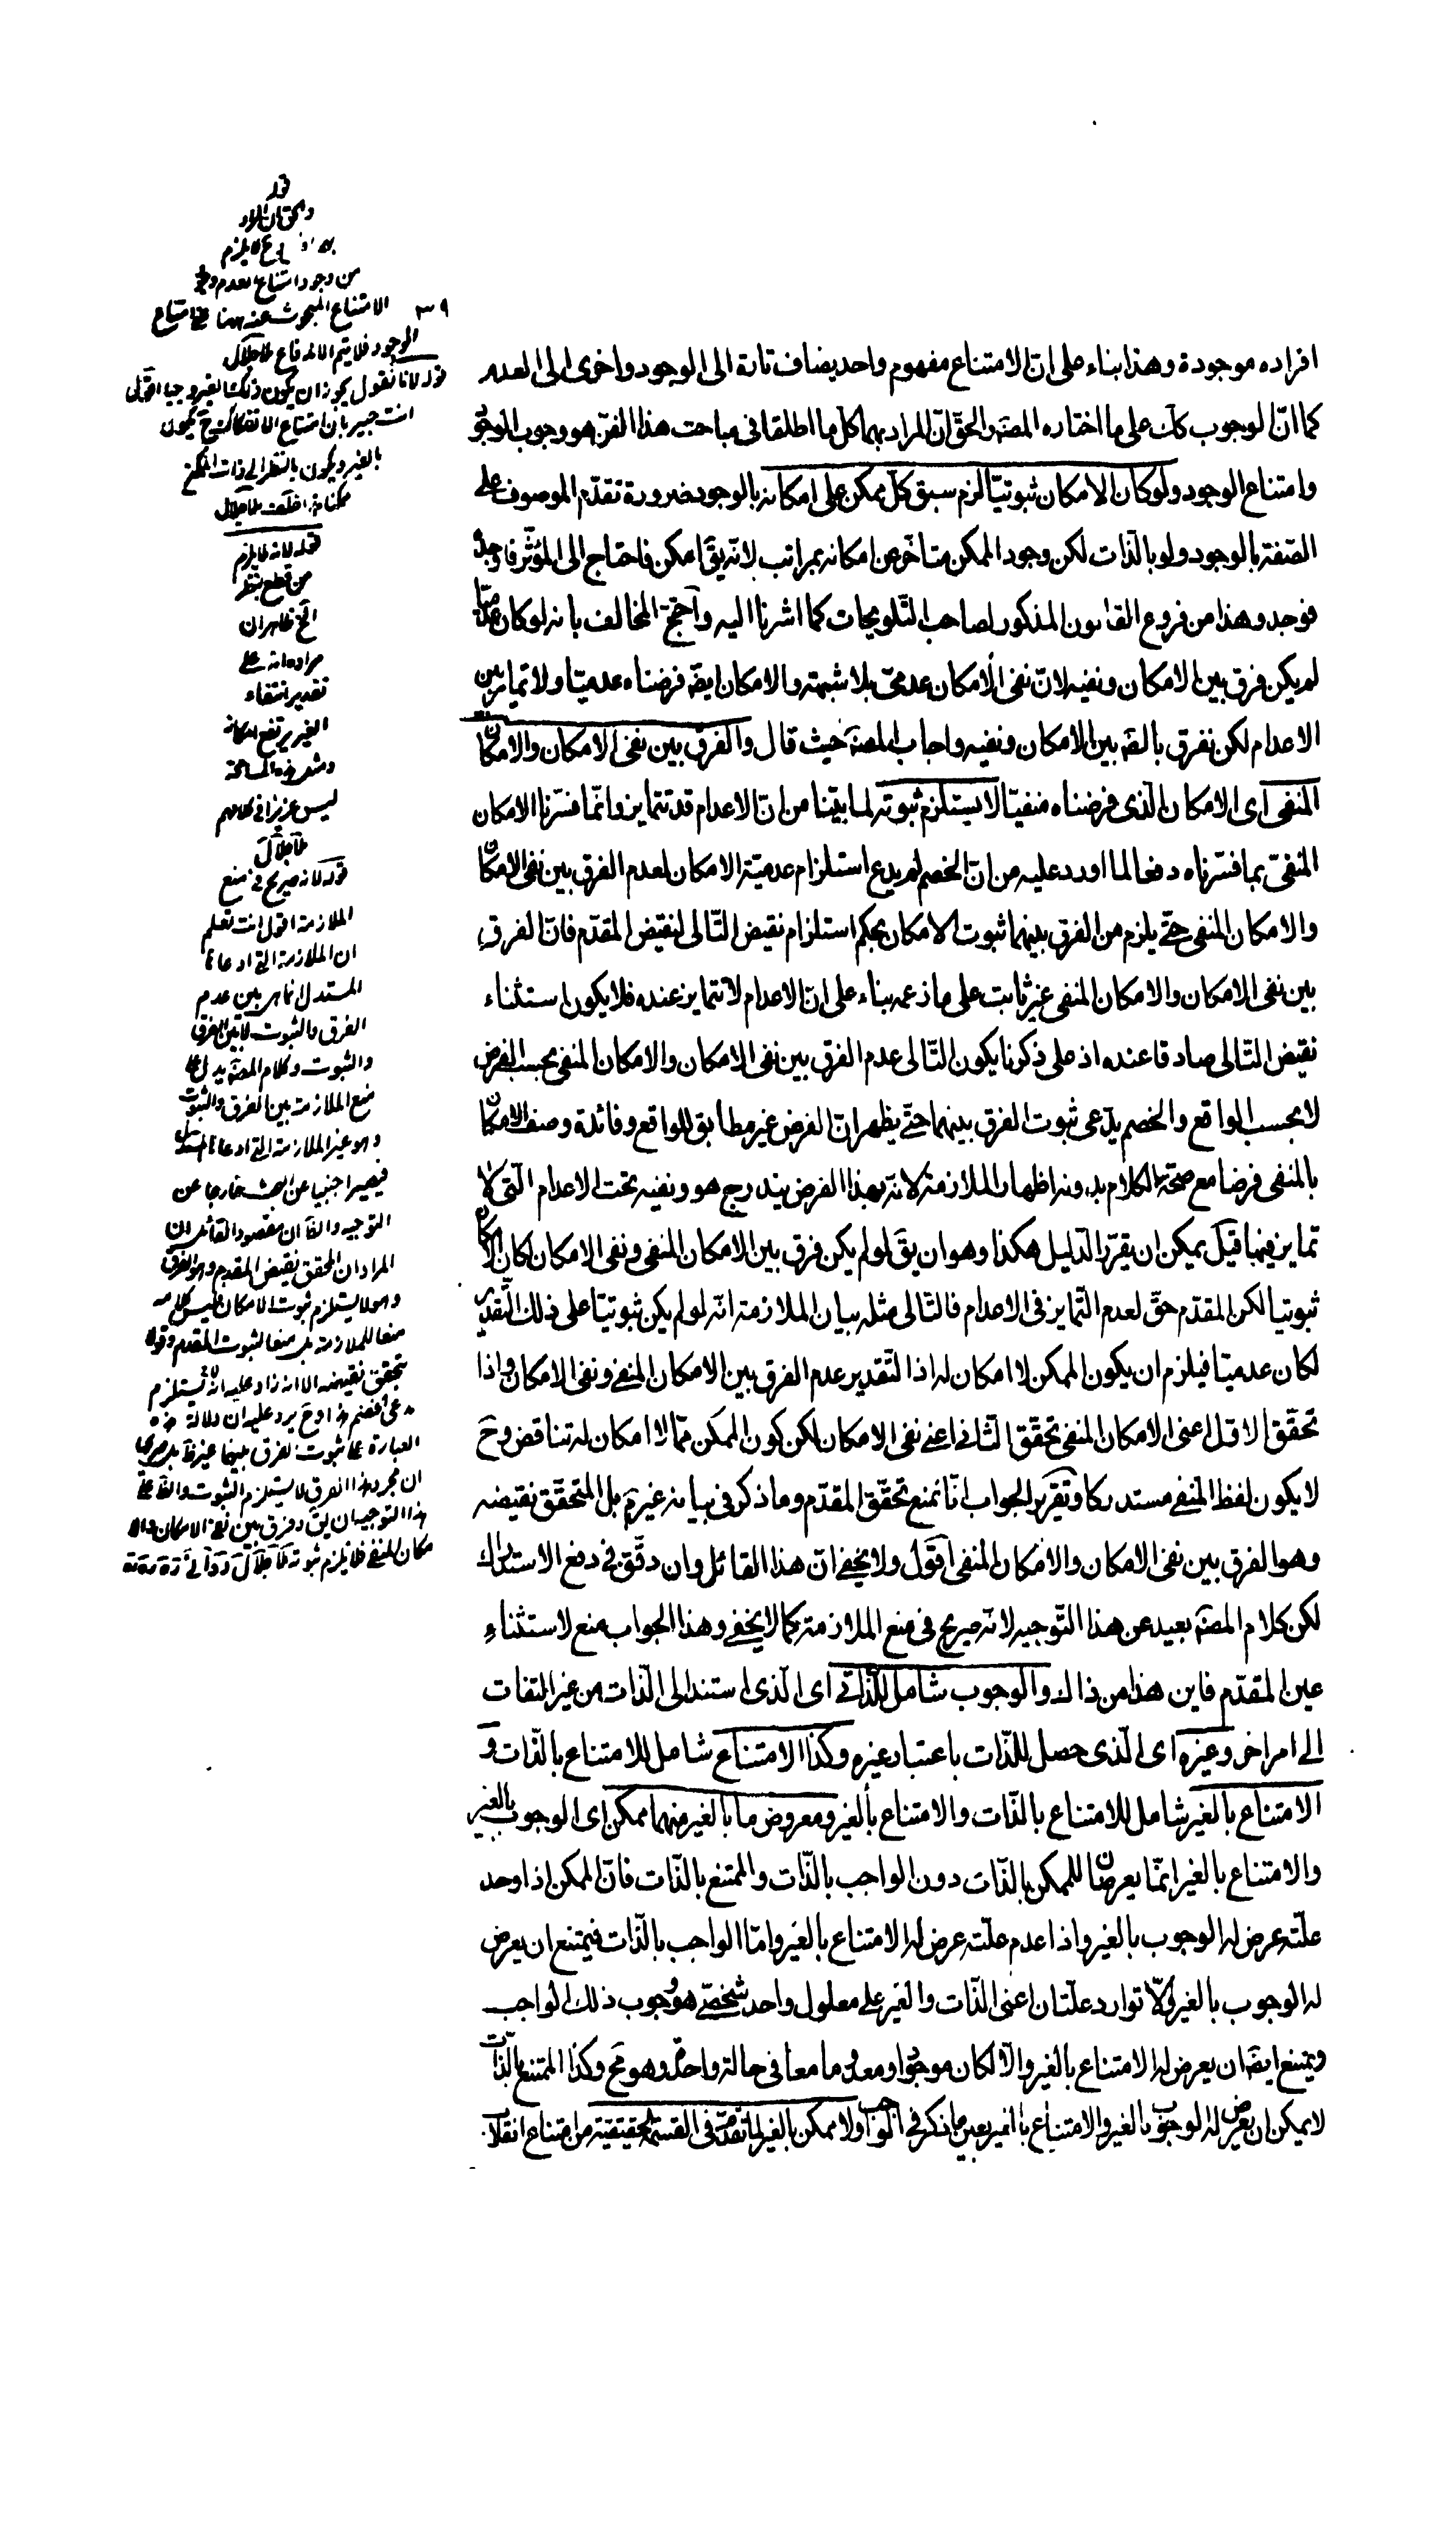 افراده موجودة وهذا بناء على انّ الامتناع مفهوم واحد يضاف تارة الى الوجود واخرى الى العدم
كما انّ الوجوب كك على ما اختاره المصـ والحقّ انّ المراد بهما كلّ ما اطلقا فى مباحث هذا الفنّ هو وجوب الوجود
وامتناع الوجود ولو كان الامكان ثبوتيّا لزم سبق كلّ ممكن على امكانه بالوجود ضرورة تقدّم الموصوف على
الصّفة بالوجود ولو بالذّات لكن وجود الممكن متاخّر عن امكانه بمراتب لانّه يقـ امكن فاحتاج الى المؤثّر فاوجده
فوجد وهذا من فروع القانون المذكور لصاحب التّلويحات كما اشرنا اليه واحتجّ المخالف بانه لو كان عدميّا
لم يكن فرق بين الامكان ونفيه لانّ نفى الامكان عدمىّ بلا شبهة والامكان ايضـ فرضناه عدميّا ولا تمايز بين
الاعدام لكن نفرق بالضـ بين الامكان ونفيه واجاب المصـ حيث قال والفرق بين نفى الامكان والامكان
المنفى اى الامكان الّذى فرضناه منفيّا لا يستلزم ثبوته لما بيّنا من انّ الاعدام قد تتمايز وانّما فسّرنا الامكان
المنفىّ بما فسّرناه دفعا لما اورد عليه من انّ الخصم لم يدع استلزام عدميّة الامكان لعدم الفرق بين نفى الامكان
والامكان المنفى حتّى يلزم من الفرق بينهما ثبوت الامكان بحكم استلزام نقيض التّالى لنقيض المقدّم فانّ الفرق
بين نفى الامكان والامكان المنفى غير ثابت على ما زعمه بناء على انّ الاعدام لا تتمايز عنده فلا يكون استثناء
نقيض التّالى صادقا عنده اذ على ذكرنا يكون التّالى عدم الفرق بين نفى الامكان والامكان المنفى بحسب الفرض
لا بحسب الواقع والخصم يدّعى ثبوت الفرق بينهما حتّى يظهر انّ الفرض غير مطابق للواقع وفائدة وصف الامكان
بالمنفى فرضا مع صحّة الكلام بدونه اظهار الملازمة لانّه بهذا الفرض يندرج هو ونفيه تحت الاعدام الّتى لا
تمايز فيها قيل يمكن ان يقرّر الدّليل هكذا وهو ان يقـ لو لم يكن فرق بين الامكان المنفى ونفى الامكان لكان الامكان
ثبوتيا لكن المقدّم حقّ لعدم التّمايز فى الاعدام فالتّالى مثله بيان الملازمة انّه لو لم يكن ثبوتيّا على ذلك التّقدير
لكان عدميّا فيلزم ان يكون الممكن لا امكان له اذ التّقدير عدم الفرق بين الامكان المنفى ونفى الامكان واذا
تحقّق الاوّل اعنى الامكان المنفى تحقّق الثّانى اعنى نفى الامكان لكن كون الممكن ممّا لا امكان له تناقض وح
لا يكون لفظ المنفى مستدركا وتقرير الجواب انّا نمنع تحقّق المقدّم وما ذكر فى بيانه غير تم بل المتحقّق نقيضه
وهو الفرق بين نفى الامكان والامكان المنفى اقول ولا يخفى انّ هذا القائل وان دقّق فى دفع الاستدراك
لكن كلام المصـ بعيد عن هذا التّوجيه لانّه صريح فى منع الملازمة كما لا يخفى وهذا الجواب منع لاستثناء
عين المقدّم فاين هذا من ذاك والوجوب شامل للذّاتى اى الّذى استند الى الذّات من غير التفات
الى امر اخر وغيره اى الّذى حصل للذّات باعتبار غيره وكذا الامتناع شامل للامتناع بالذّات و
الامتناع بالغير شامل للامتناع بالذّات والامتناع بالغير ومعروض ما بالغير منهما ممكن اى الوجوب بالغير
والامتناع بالغير انّما يعرضان للممكن بالذّات دون الواجب بالذّات والممتنع بالذّات فانّ الممكن اذا وجد
علّته عرض له الوجوب بالغير واذا عدم علّته عرض له الامتناع بالغير وامّا الواجب بالذّات فيمتنع ان يعرض
له الوجوب بالغير والّا توارد علّتان اعنى الذّات والغير على معلول واحد شخصّى هو وجوب ذلك الواجب
ويمتنع ايضـ ان يعرض له الامتناع بالغير والّا لكان موجودا ومعدوما معا فى حالة واحدة وهو مح وكذا الممتنع بالذّات
لا يمكن ان يعرض له الوجوب بالغير والامتناع بالغير بعين ما ذكر فى الواجب ولا ممكن بالغير لما تقدّم فى القسمة الحقيقيّة من امتناع انقلاب
٣٩
قوله
والحق ان المراد
من وجود امتناع العدم
الامتناع المبحوث عنه ههنا هو امتناع
الوجود فلا يتم الاندفاع
قوله لانا نقول يجوز ان يكون ذلك الغير واجبا اقول
انت خبير بان امتناع الانفكاك ح يكون
بالغير ويكون بالنظر الى ذات الممكن
ممكنا
قوله لانه لا يلزم
من قطع النظر
الخ ظاهر ان
مراده انه على
تقدير انتفاء
الغير يرتفع امكانه
ومثل هذه المسامحة
ليس عزيزا فى كلامهم
قوله لانه صريح فى منع
الملازمة اقول انت تعلم
ان الملازمة التى ادعاها
المستدل انما هو بين عدم
الفرق والثبوت لا بين الفرق
والثبوت وكلام المصـ يدل على
منع الملازمة بين الفرق والثبوت
وهو غير الملازمة التى ادعاها المستدل
فيصير اجنبيا عن البحث خارجا عن
التوجيه والظ ان مقصود القائل ان
المراد ان المحقق نقيض المقدم وهو الفرق
وهو لا يستلزم ثبوت الامكان فليس كلامه
منعا للملازمة بل منعا لثبوت المقدم وقوله
يتحقق نقيضه الا انه زاد عليه انه لا يستلزم
مدعى الخصم هذا وح يرد عليه ان دلالة هذه
العبارة على ثبوت الفرق بينهما غير ظ بل صريحه
ان مجرد هذا الفرق لا يستلزم الثبوت والظ على
هذا التوجيه ان يقـ وفرق بين نفى الامكان والا
مكان المنفى فلا يلزم ثبوته